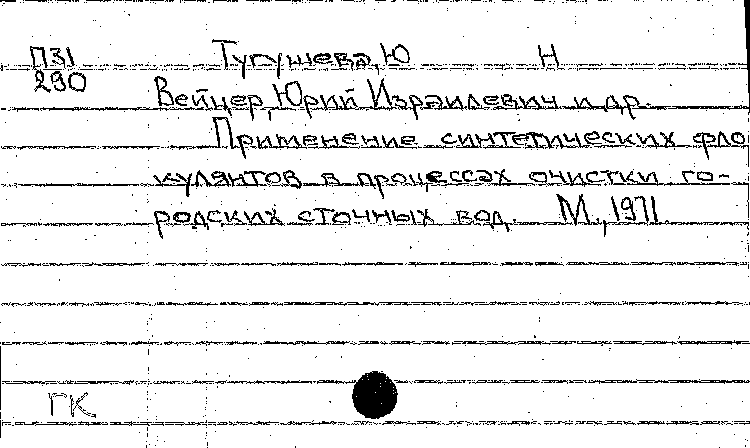 П31 Тугушева, Ю Н
290
Вейцер, Юрий Израилевич и др.
Применение синтетических фло
кулянтов в процессах очистки го-
родских сточных вод. М., 1971.
ГК